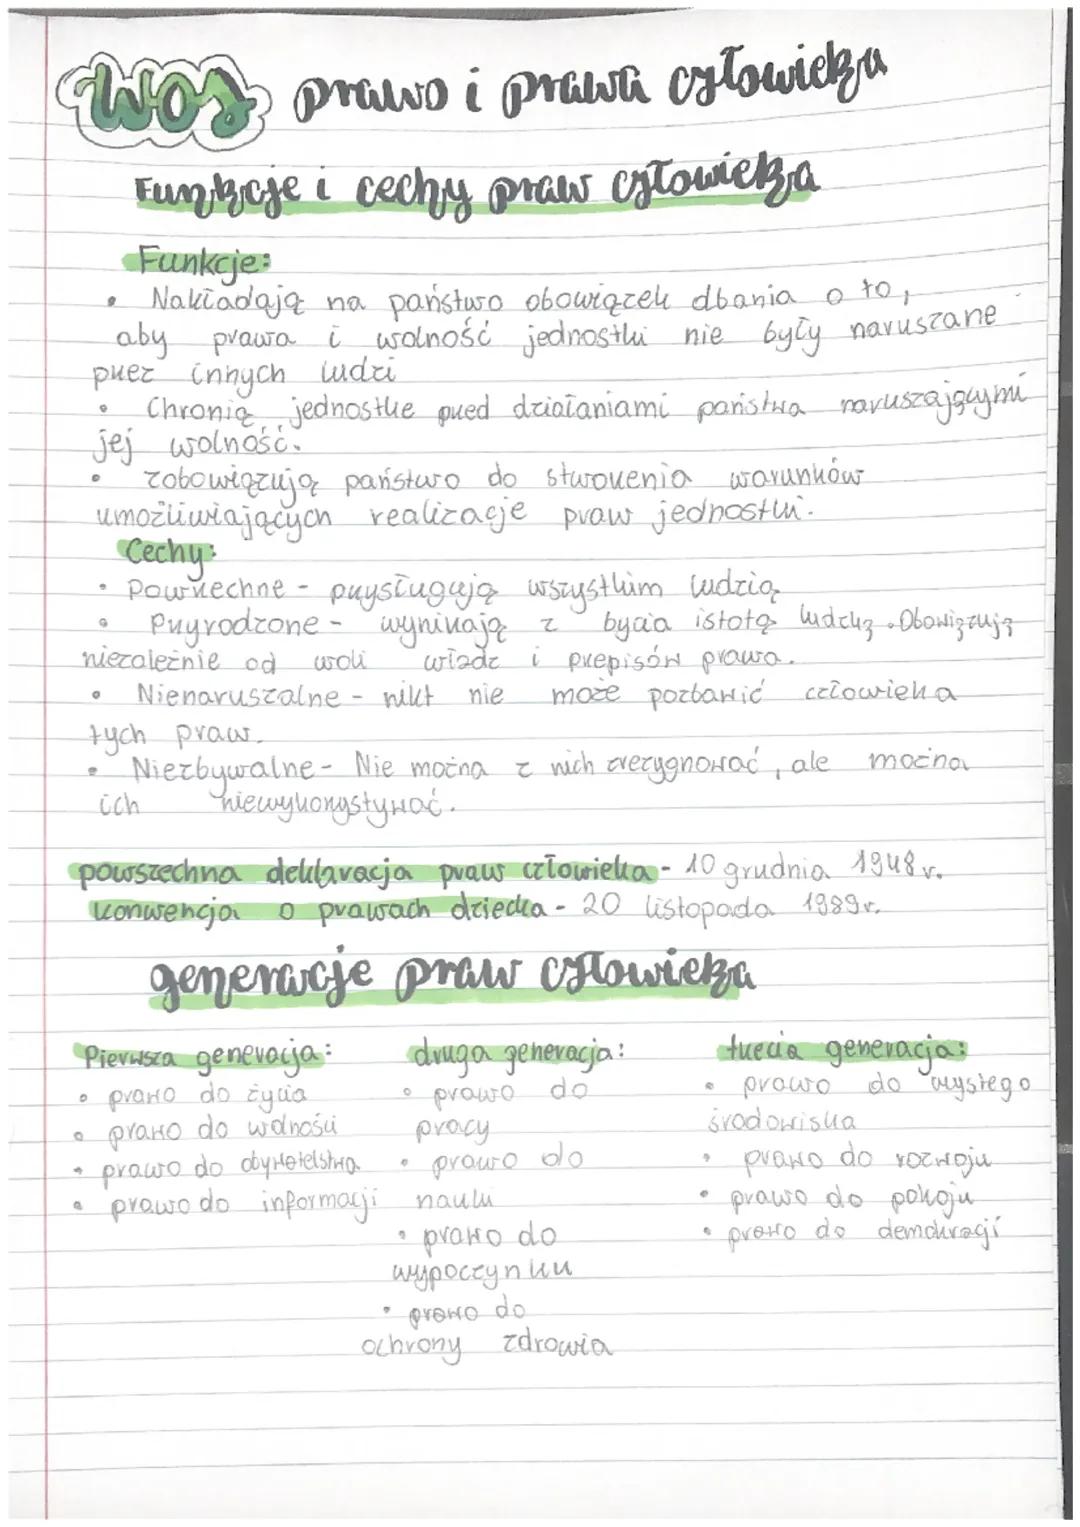 WOS prawo i prawa człowieka
Funkcje i cechy praw człowieka
Funkcje:
• Nakładają na państwo obowiązek dbania o to,
aby prawa i wolność jednostki nie były naruszane
przez innych ludzi
• Chronią jednostkę przed działaniami państwa naruszającymi
jej wolność.
• zobowiązują państwo do stworzenia warunków
umożliwiających realizację praw jednostki.
Cechy:
• Powszechne - przysługują wszystkim ludzią
• Przyrodzone - wynikają z bycia istotą ludzką. Obowiązują
niezależnie od woli władz i przepisów prawa.
• Nienaruszalne - nikt nie może pozbawić człowieka
tych praw.
• Niezbywalne - Nie można z nich zrezygnować, ale można
ich niewykorzystywać.
powszechna deklaracja praw człowieka - 10 grudnia 1948 r.
konwencja o prawach dziecka - 20 listopada 1989r.
generacje praw człowieka
Pierwsza generacja: druga generacja: trzecia generacja:
• prawo do życia • prawo do • prawo do czystego
• prawo do wolności pracy środowiska
• prawo do obywatelstwa • prawo do • prawo do rozwoju
• prawo do informacji nauki • prawo do pokoju
• prawo do • prawo do demokracji
wypoczynku
• prawo do
ochrony zdrowia